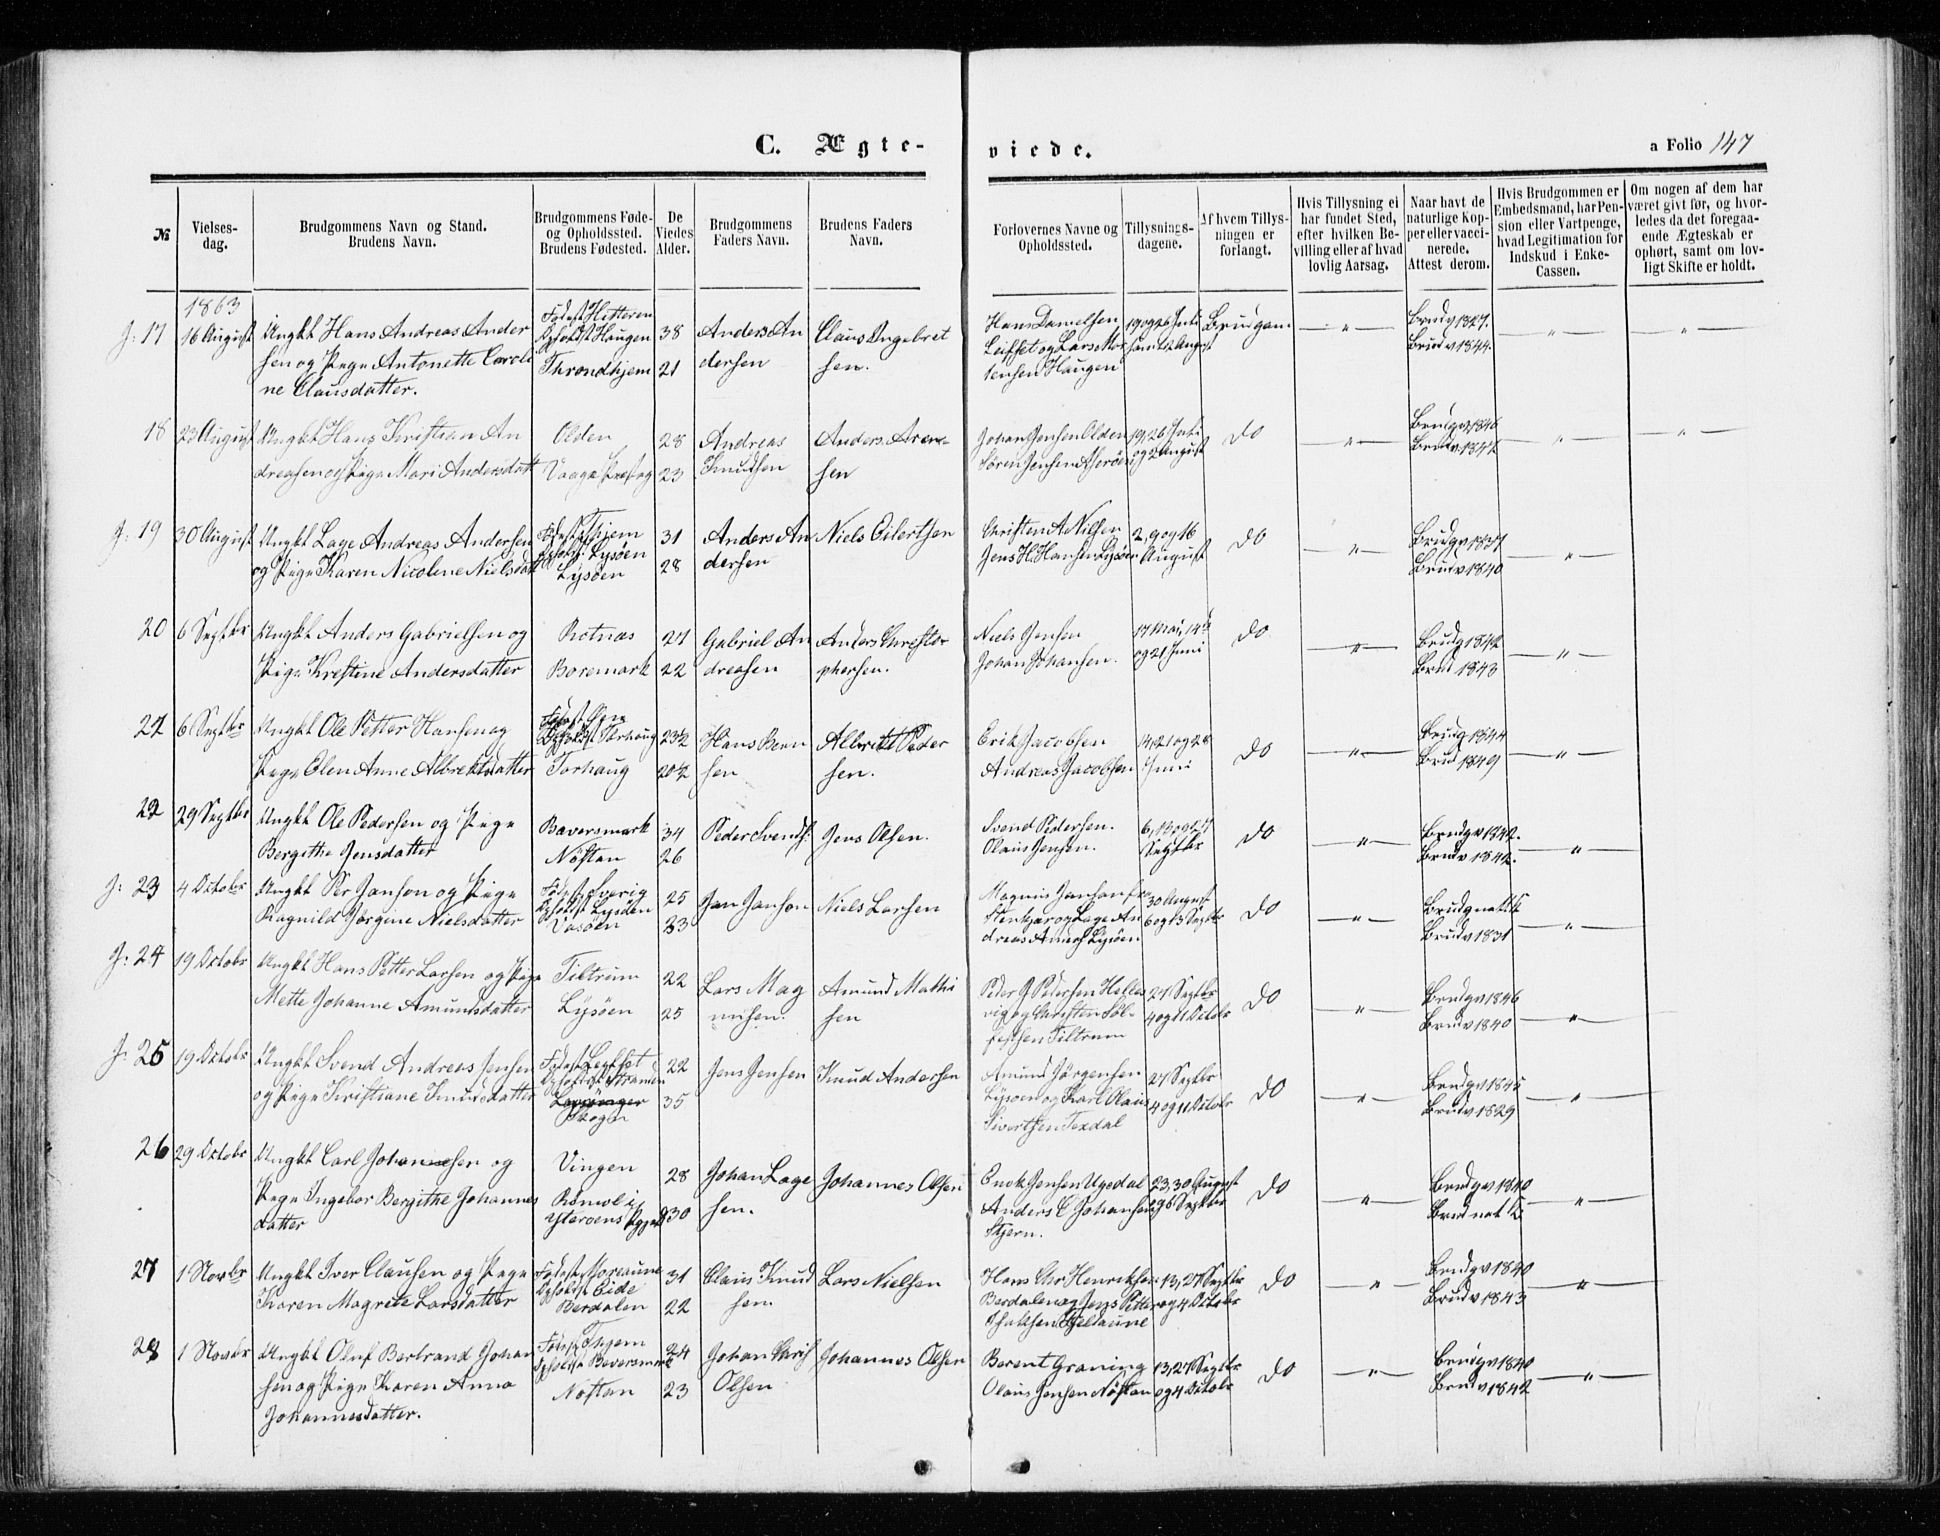 C. Ægte-
viede.
a Folio 147
№
Vielses-
dag.
Brudgommens Navn og Stand.
Brudens Navn.
Brudgommens Føde-
og Opholdssted.
Brudens Fødested.
De
Viedes
Alder.
Brudgommens
Faders Navn.
Brudens Faders
Navn.
Forlovernes Navne og
Opholdssted.
Tillysnings-
dagene.
Af hvem Tillys-
ningen er
forlangt.
Hvis Tillysning ei
har fundet Sted,
efter hvilken Be-
villing eller af hvad
lovlig Aarsag.
Naar havt de
naturlige Kop-
per eller vacci-
nerede.
Attest derom.
Hvis Brudgommen er
Embedsmand, har Pen-
sion eller Vartpenge,
hvad Legitimation for
Indskud i Enke-
Cassen.
Om nogen af dem har
været givt før, og hvor-
ledes da det foregaa-
ende Ægteskab er
ophørt, samt om lov-
ligt Skifte er holdt.
1863
17 16 August Ungkt Hans Andreas Ander
sen og Pige Antonette Caroli
ne Clausdatter.
Født Hitteren
Opholdst Haugen
Throndhjem
38
21
Anders An
dersen
Claus Ingebret
sen.
Hans Danielsen
Leifset og Lars Mor
tensen Haugen
19 og 26 Juli
samt 2 August
Brudgom
Brudg v 1827.
Brud v 1844.
18 23 August Ungkt Hans Kristian An
dreasen og Pige Mari Andersdatt
Olden
28
23
Andreas
Knudsen
Anders Aren
sen
Johan Jensen Olden
Søren Jensen
19, 26 Juli
og 2 August
do
Brudg v 1846
19 30 August Ungkt Lage Andreas Andersen
og Pige Karen Nicoline Nielsdatt
Født Thjem
Opholdst Lysøen
Lysøen
31
28
Anders An
dersen
Niels Eilertsen
Christen A Nilsen
Jens H. Hansen Lysøen
2, 9 og 16
August
do
Brudg v 1837
Brud v 1840
20 6 Septbr Ungkt Anders Gabrielsen og
Pige Kristine Andersdatter
Rotnæs
Boremark
27
22
Gabriel An
dreasen
Anders Christo
phersen.
Niels Jensen
Johan Johansen.
17 Mai, 14de
og 21 Juni
do
Brudg 1842
Brud 1843
21 6 Septbr Ungkt Ole Petter Hansen og
Pige Elen Anne Albrektsdatter
Opholdst Torhaug
Torhaug
23½
20½
Hans Bern
sen
Albrekt Peder
sen.
Erik Jacobsen
Andreas Jacobsen
14, 21 og 28
Juni
do
Brudg 1844
Brud 1849
22 29 Septbr Ungkt Ole Pedersen og Pige
Bergithe Jensdatter
Baversmark
Nøstan
34
26
Peder Svends.
Jens Olsen.
Svend Pedersen.
Olaus Jensen.
Septbr
do
Brudg v 1842.
Brud v 1842.
23 4 Octobr Ungkt Per Janson og Pige
Ragnild Jørgene Nielsdatter
Født Sverig
Opholdst Lysøen
25
33
Jan Janson
Niels Larsen
Magnus Janson fra
Stenkjær og Lage An
dreas Anders Lysøen
30 August
6 og 13 Septbr
do
Brud v 1831
24 19 Octobr Ungkt Hans Petter Larsen og Pige
Mette Johanne Amundsdatter
Tiltrum
Lysøen
22
25
Lars Mag
nusen.
Amund Mathi
sen
Peder J Pedersen Helles
vig og Christen Tol
lefsen Tiltrum
27 Septbr
4 og 11 Octobr
do
Brudg v 1846
Brud v 1840
25 19 Octobr Ungkt Svend Andreas Jensen
og Pige Kristiane Knudsdatter
Opholdst Stranden
22
35
Jens Jensen
Knud Andersen
Amund Jørgensen
Lysøen og Karl Olaus
Sivertsen Texdal
27 Septbr
4 og 11 Octobr
do
Brudg v 1845
Brud v 1829
26 29 Octobr Ungkt Carl Johannesen og
Pige Ingebor Bergithe Johannes
datter
Vingen
28
30
Johan Lage
sen.
Johannes Olsen
Enok Jensen Ugedal
Anders C Johansen
Stjern.
23, 30 August
og 6 Septbr
do
Brudg v 1840
27 1 Novbr Ungkt Iver Clausen og Pige
Karen Magrete Larsdatter
Født Moreaune
Opholdst Eide
Berdalen
31
22
Claus Knud
sen.
Lars Nielsen
Hans Chr Henriksen
Berdalen og Jens Petter
13, 27 Septbr
og 4 Octobr
do
Brudg v 1840
Brud v 1843
28 1 Novbr Ungkt Oluf Bertrand Johan
sen og Pige Karen Anna
Johannesdatter.
Født Thjem
Opholdst Beversmark
Nøstan
24
23
Johan Chris
Olsen
Johannes Olsen
Berent Graning
Olaus Jensen Nøstan
13, 27 Septbr
og 4 Octobr
do
Brudg v 1840
Brud v 1842